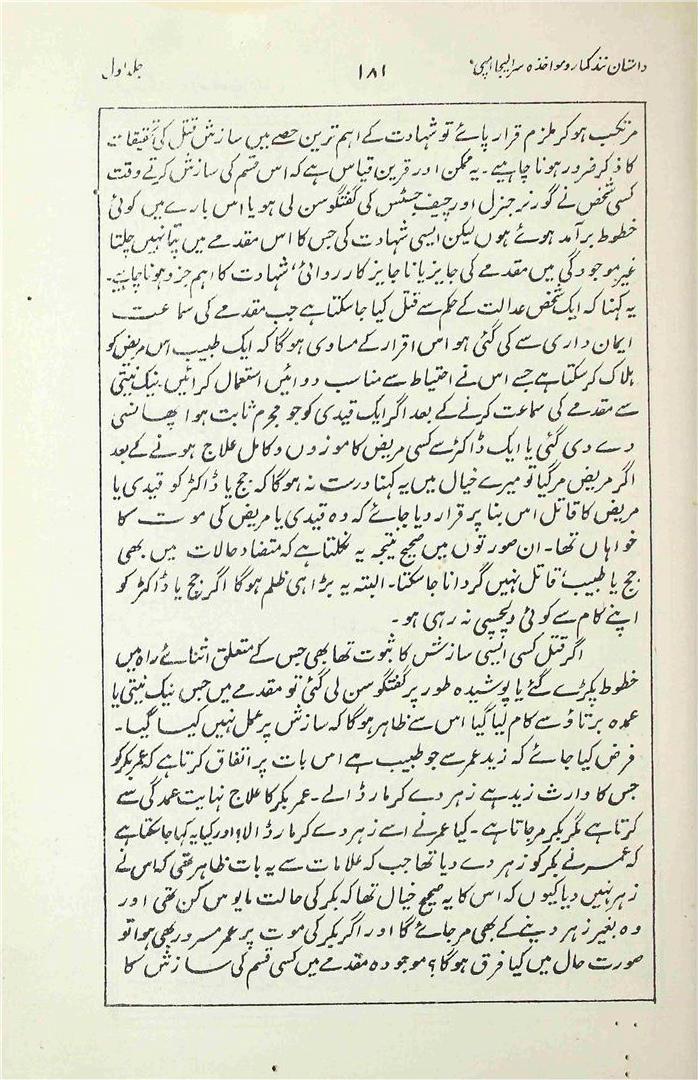 داستان نند کمار و مواخذہ سر ایلیجا امپی
۱۸۱
جلد اول
مرتکب ہو کر ملزم قرار پائے تو شہادت کے اہم ترین حصے میں سازش قتل کی تحقیقات
کا ذکر ضرور ہونا چاہیے۔ یہ ممکن اور قرین قیاس ہے کہ اس قسم کی سازش کرتے وقت
کسی شخص نے گورنر جنرل اور چیف جسٹس کی گفتگو سن لی ہو یا اس بارے میں کوئی
خطوط برآمد ہوئے ہوں لیکن ایسی شہادت کی جس کا اس مقدمے میں پتا نہیں چلتا
غیر موجودگی میں مقدمے کی جایز یا ناجایز کارروائی، شہادت کا اہم جزو ہونا چاہیے۔
یہ کہنا کہ ایک شخص عدالت کے حکم سے قتل کیا جا سکتا ہے جب مقدمے کی سماعت
ایمان داری سے کی گئی ہو اس اقرار کے مساوی ہوگا کہ ایک طبیب اس مریض کو
ہلاک کر سکتا ہے جسے اس نے احتیاط سے مناسب دوائیں استعمال کرائیں۔ نیک نیتی
سے مقدمے کی سماعت کرنے کے بعد اگر ایک قیدی کو جو مجرم ثابت ہوا پھانسی
دے دی گئی یا ایک ڈاکٹر سے کسی مریض کا موزوں و کامل علاج ہونے کے بعد
اگر مریض مر گیا تو میرے خیال میں یہ کہنا درست نہ ہوگا کہ جج یا ڈاکٹر کو قیدی یا
مریض کا قاتل اس بنا پر قرار دیا جائے کہ وہ قیدی یا مریض کی موت کا
خواہاں تھا۔ ان صورتوں میں صحیح نتیجہ یہ نکلتا ہے کہ متضاد حالات میں بھی
جج یا طبیب قاتل نہیں گردانا جا سکتا۔ البتہ یہ بڑا ہی ظلم ہوگا اگر جج یا ڈاکٹر کو
اپنے کام سے کوئی دلچسپی نہ رہی ہو۔
اگر قتل کسی ایسی سازش کا ثبوت تھا بھی جس کے متعلق اثنائے راہ میں
خطوط پکڑے گئے یا پوشیدہ طور پر گفتگو سن لی گئی تو مقدمے میں جس نیک نیتی یا
عمدہ برتاؤ سے کام لیا گیا اس سے ظاہر ہوگا کہ سازش پر عمل نہیں کیا گیا۔
فرض کیا جائے کہ زید عمر سے جو طبیب ہے اس بات پر اتفاق کرتا ہے کہ عمر بکر کو
جس کا وارث زید ہے زہر دے کر مار ڈالے۔ عمر بکر کا علاج نہایت عمدگی سے
کرتا ہے مگر بکر مر جاتا ہے۔ کیا عمر نے اسے زہر دے کر مار ڈالا؟ اور کیا یہ کہا جا سکتا ہے
کہ عمر نے بکر کو زہر دے دیا تھا جب کہ علامات سے یہ بات ظاہر تھی کہ اس نے
زہر نہیں دیا کیوں کہ اس کا یہ صحیح خیال تھا کہ بکر کی حالت مایوس کن تھی اور
وہ بغیر زہر دینے کے بھی مر جائے گا اور اگر بکر کی موت پر عمر مسرور بھی ہوا تو
صورت حال میں کیا فرق ہوگا؟ موجودہ مقدمے میں کسی قسم کی سازش کا